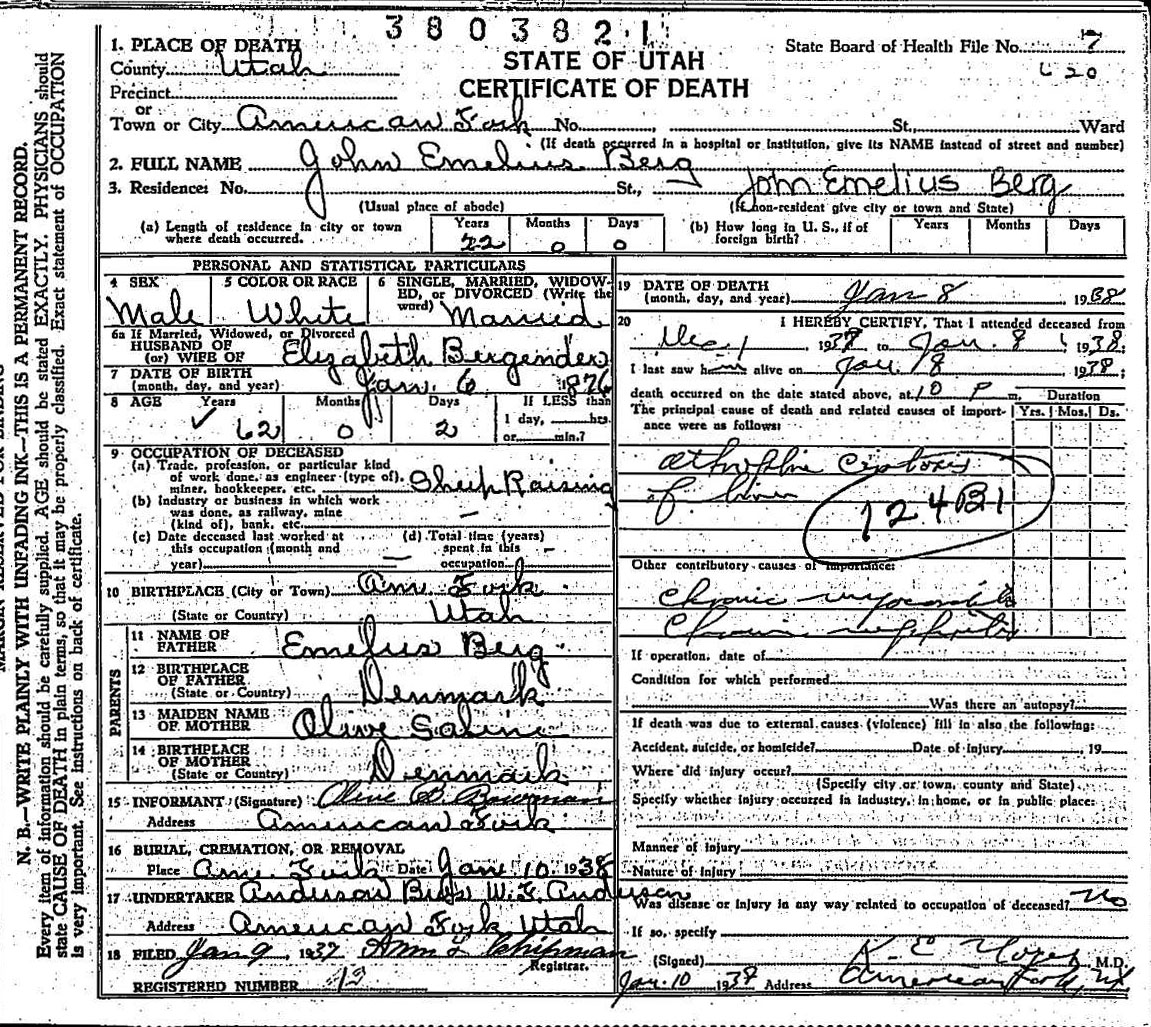 3 8 0 3 8 2 1
STATE OF UTAH
CERTIFICATE OF DEATH
State Board of Health File No. 7
620
1. PLACE OF DEATH
County Utah
Precinct
or
Town or City American Fork No. , St., Ward
(If death occurred in a hospital or institution, give its NAME instead of street and number)
2. FULL NAME John Emelius Berg
3. Residence: No. St., John Emelius Berg
(Usual place of abode) (If non-resident give city or town and State)
(a) Length of residence in city or town where death occurred. Years 22 Months 0 Days 0
(b) How long in U. S., if of foreign birth? Years Months Days
PERSONAL AND STATISTICAL PARTICULARS
4 SEX Male
5 COLOR OR RACE White
6 SINGLE, MARRIED, WIDOWED, or DIVORCED (Write the word) Married
6a If Married, Widowed, or Divorced
HUSBAND OF
(or) WIFE OF Elizabeth
7 DATE OF BIRTH
(month, day, and year) Jan. 6 1876
8 AGE Years 62 Months 0 Days 2
If LESS than
1 day, hrs.
or min.?
9 OCCUPATION OF DECEASED
(a) Trade, profession, or particular kind
of work done, as engineer (type of),
miner, bookkeeper, etc. Sheep Raising
(b) Industry or business in which work
was done, as railway, mine
(kind of), bank, etc. –
(c) Date deceased last worked at
this occupation (month and
year) —
(d) Total time (years)
spent in this
occupation –
10 BIRTHPLACE (City or Town) Am. Fork
(State or Country) Utah
PARENTS
11 NAME OF
FATHER Emelius Berg
12 BIRTHPLACE
OF FATHER
(State or Country) Denmark
13 MAIDEN NAME
OF MOTHER Olive
14 BIRTHPLACE
OF MOTHER
(State or Country) Denmark
15 INFORMANT (Signature) Olive B. Bowman
Address American Fork
16 BURIAL, CREMATION, OR REMOVAL
Place Am. Fork Date Jan 10 1938
17 UNDERTAKER Anderson Bros W. F. Anderson
Address American Fork Utah
18 FILED Jan 9, 1937 Chipman
Registrar.
REGISTERED NUMBER 12
19 DATE OF DEATH
(month, day, and year) Jan 8 1938
20 I HEREBY CERTIFY, That I attended deceased from
Dec. 1 1937 to Jan. 8 1938.
I last saw him alive on Jan. 8 1938;
death occurred on the date stated above, at 10 P m.
The principal cause of death and related causes of importance were as follows:
Duration
Yrs. Mos. Ds.
of liver
124B1
Other contributory causes of importance:
Chronic myocarditis
Chronic nephritis
If operation, date of
Condition for which performed
Was there an autopsy?
If death was due to external causes (violence) fill in also the following:
Accident, suicide, or homicide? Date of Injury , 19
Where did injury occur?
(Specify city or town, county and State)
Specify whether injury occurred in industry, in home, or in public place:
Manner of injury
Nature of Injury
Was disease or injury in any way related to occupation of deceased? No
If so, specify
(Signed) K. E. M.D.
Jan. 10 193 Address American Fork, Ut
N. B.—WRITE PLAINLY WITH UNFADING INK—THIS IS A PERMANENT RECORD.
Every item of information should be carefully supplied. AGE should be stated EXACTLY. PHYSICIANS should
state CAUSE OF DEATH in plain terms, so that it may be properly classified. Exact statement of OCCUPATION
is very important. See instructions on back of certificate.